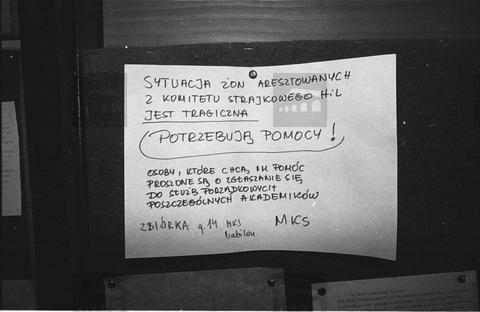 SYTUACJA ŻON ARESZTOWANYCH
Z KOMITETU STRAJKOWEGO HiL
JEST TRAGICZNA
POTRZEBUJĄ POMOCY!
OSOBY, KTÓRE CHCĄ IM POMÓC
PROSZONE SĄ O ZGŁASZANIE SIĘ
DO SŁUŻB PORZĄDKOWYCH
POSZCZEGÓLNYCH AKADEMIKÓW
ZBIÓRKA g. 14 MKS
babilon
MKS